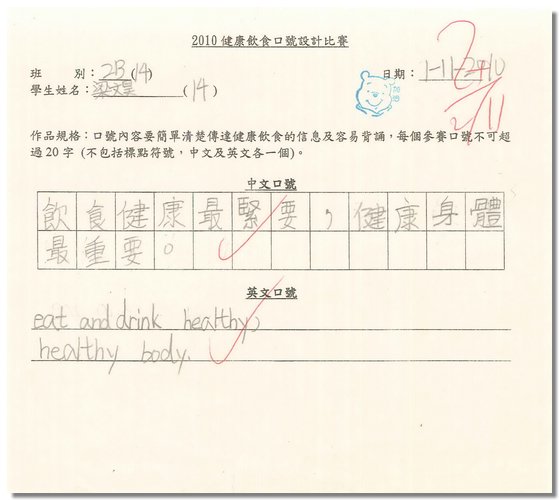 2010 健康飲食口號設計比賽
班 別：2B (14) 日期：1-11-2010
學生姓名：梁文昊 (14)
2/11
作品規格：口號內容要簡單清楚傳達健康飲食的信息及容易背誦，每個參賽口號不可超
過 20 字 (不包括標點符號，中文及英文各一個)。
中文口號
飲食健康最緊要，健康身體
最重要。
英文口號
eat and drink healthy,
healthy body.